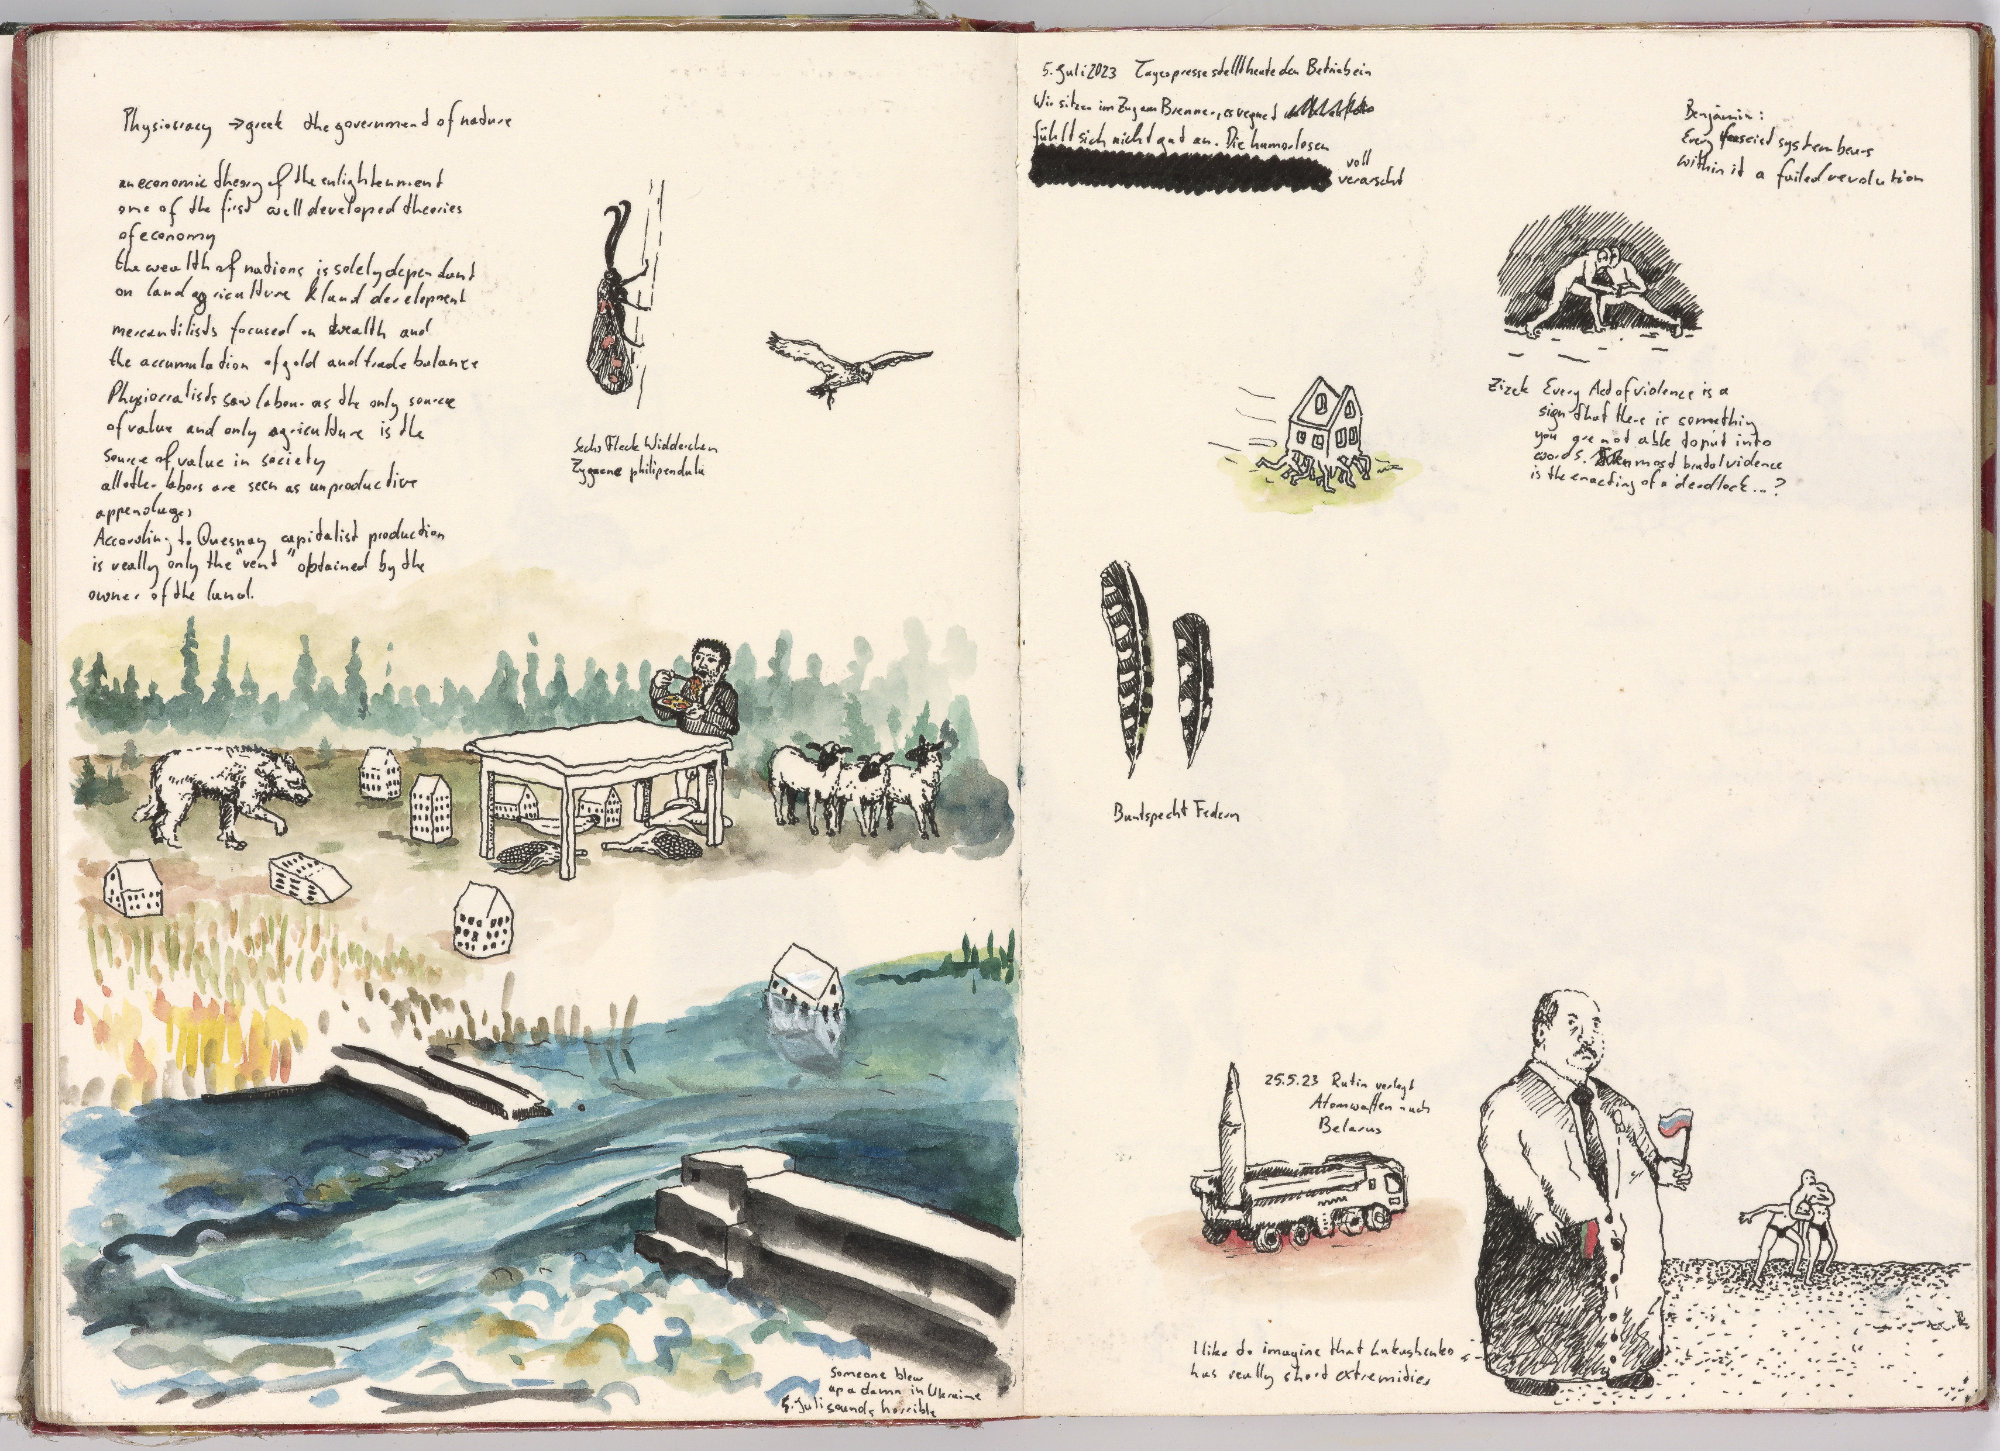 Physiocracy → greek the government of nature
an economic theory of the enlightenment
one of the first well developed theories
of economy
the wealth of nations is solely dependant
on land agriculture & land development
mercantilists focused on wealth and
the accumulation of gold and trade balance
Physiocratists saw labour as the only source
of value and only agriculture is the
source of value in society
all other labors are seen as unproductive
appendages
According to Quesnay capitalist production
is really only the "rent" obtained by the
owner of the land.
Sechs Fleck Widderchen
Zygaene philipendula
someone blew
up a damn in Ukraine
5. Juli sounds horrible
5. Juli 2023 Tagespresse stellt heute den Betrieb ein
Wir sitzen im Zug am Brenner, es regnet
fühlt sich nicht gut an. Die humorlosen
voll
verarscht
Benjamin:
Every fascist system bears
within it a failed revolution
Zizek Every Act of violence is a
sign that there is something
you are not able to put into
words. most brutal violence
is the enacting of a deadlock...?
Buntspecht Federn
25.5.23 Putin verlegt
Atomwaffen nach
Belarus
I like to imagine that Lukashenko
has really short extremidies